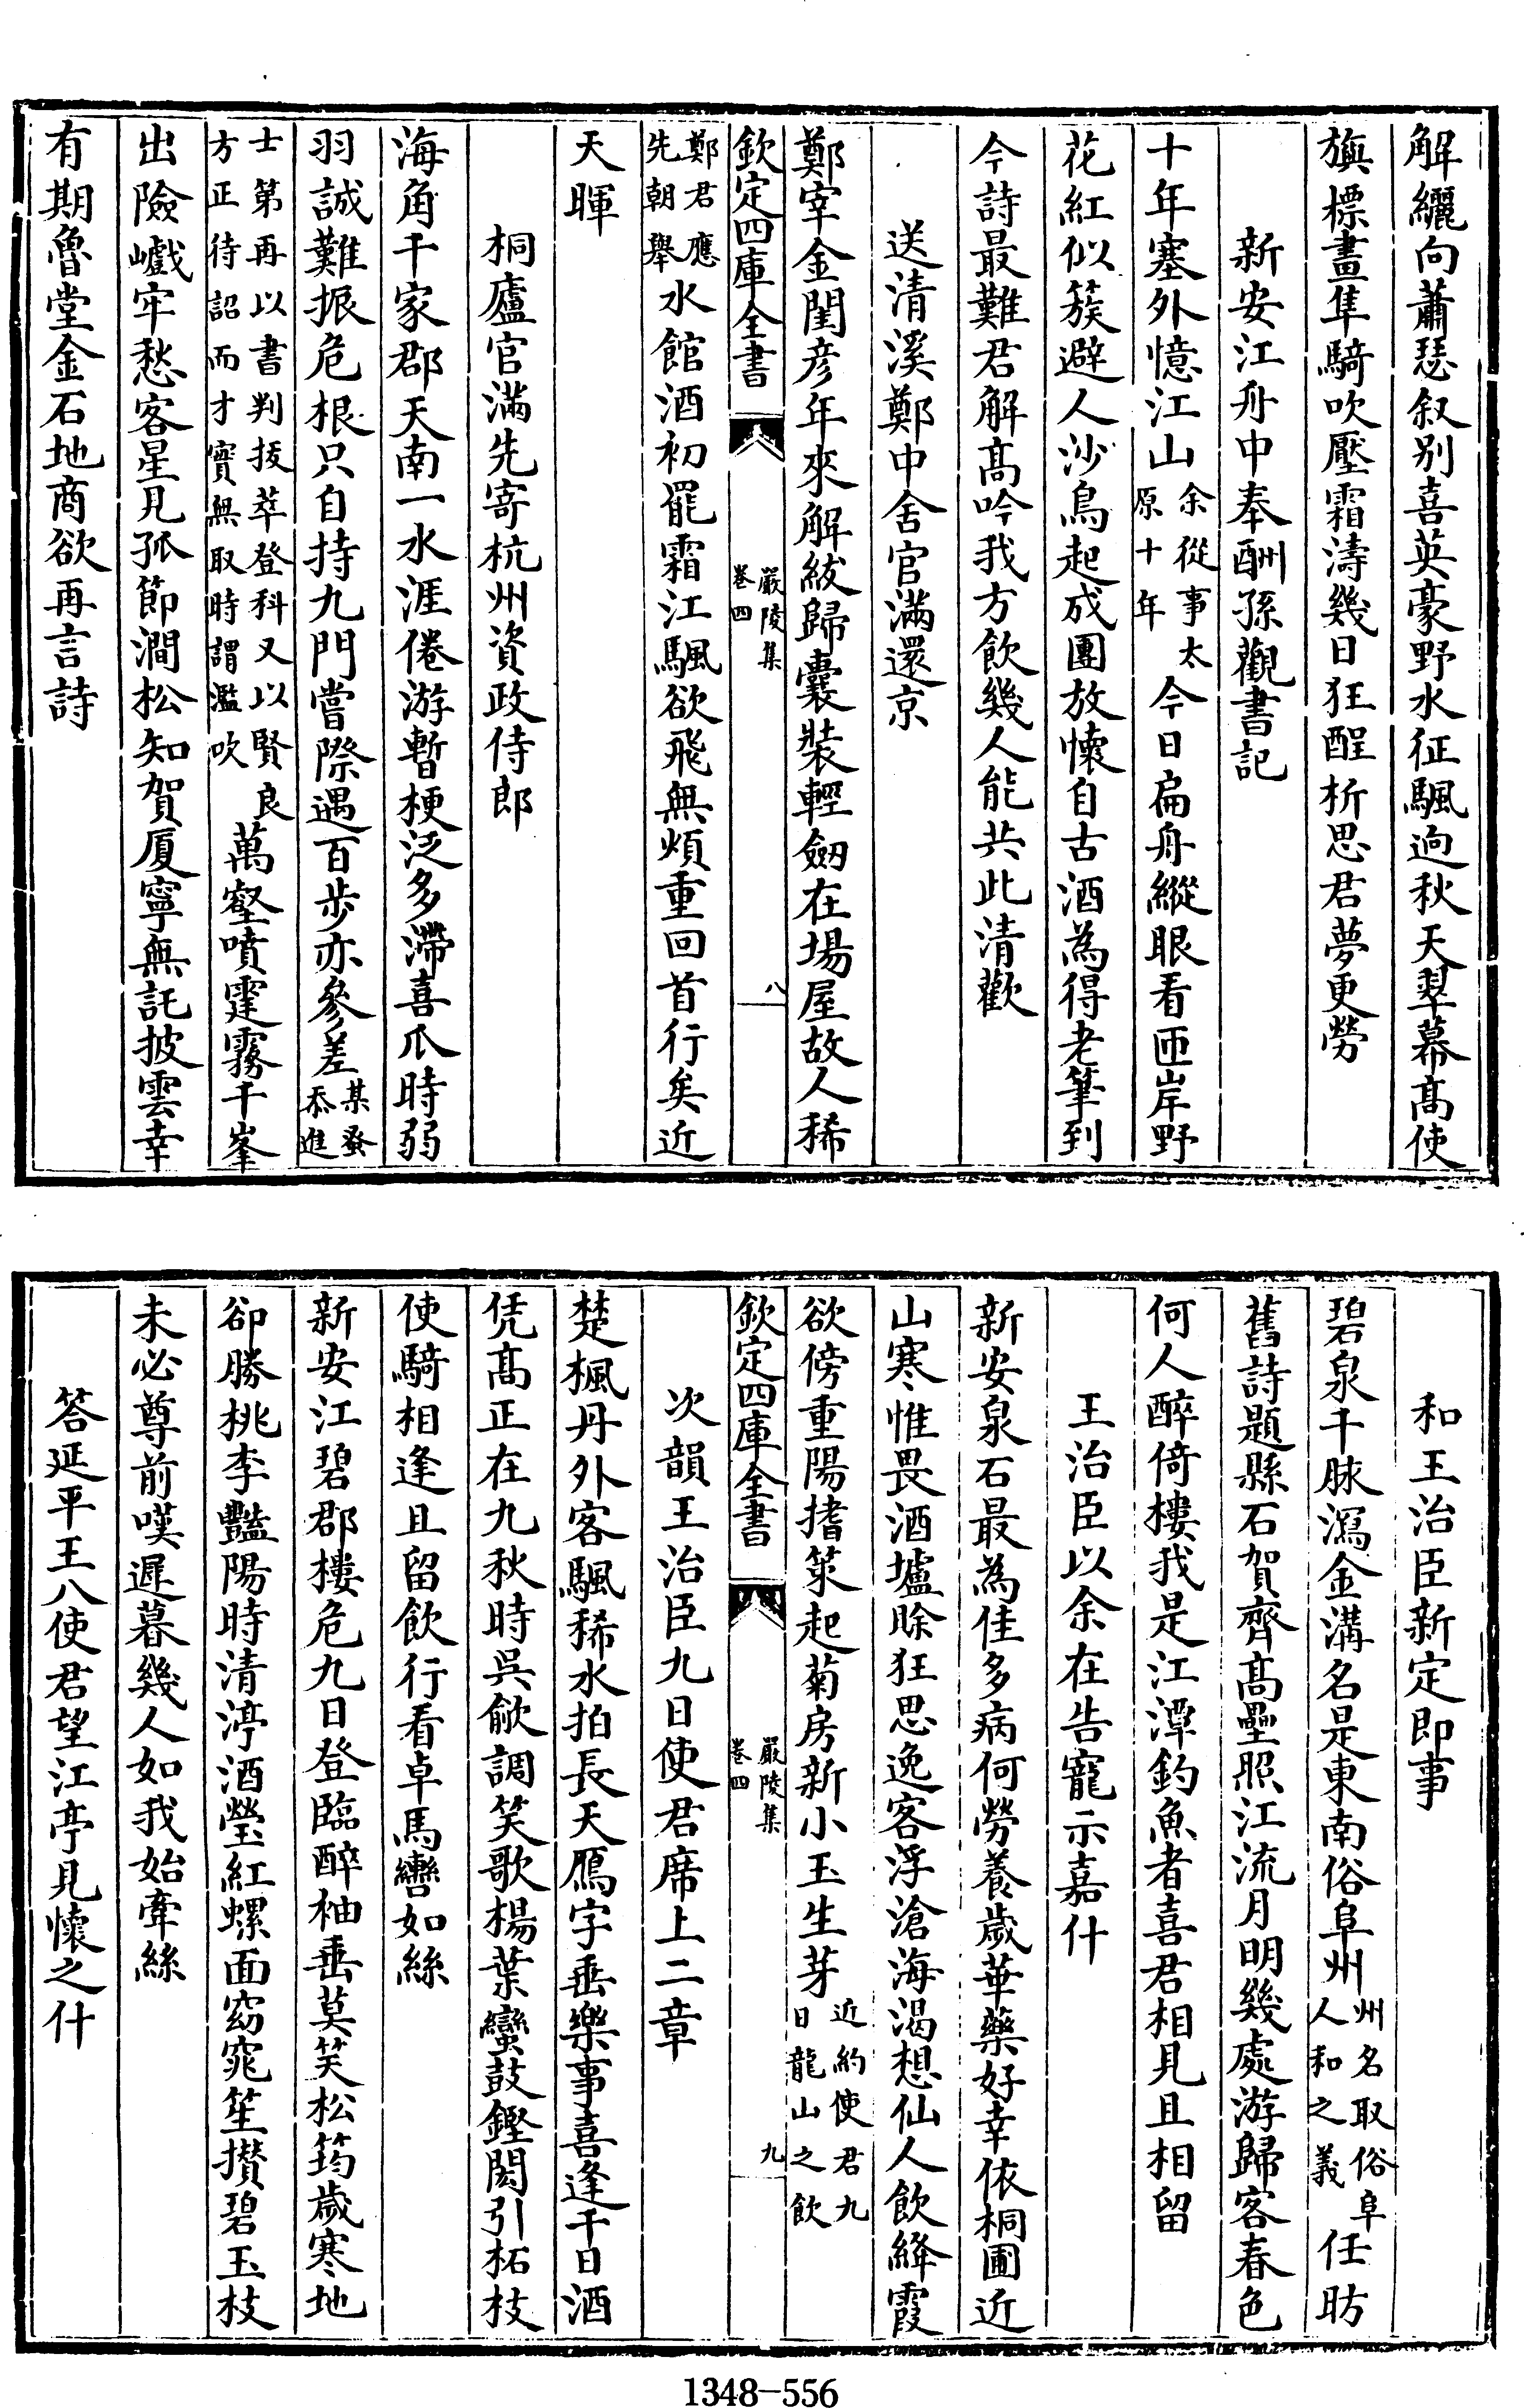 解纚向蕭瑟叙别喜英豪野水征颿逈秋天翠幕髙使
旟標畫隼騎吹壓霜濤幾日狂酲析思君夢更勞
新安江舟中奉酬孫觀書記
十年塞外憶江山余從事太原十年今日扁舟縱眼看匝岸野
花紅似簇避人沙鳥起成團放懐自古酒為得老筆到
今詩最難君解髙吟我方飲幾人能共此清歡
送清溪鄭中舍官滿還京
鄭宰金閨彦年來解紱歸囊裝輕劒在場屋故人稀
欽定四庫全書 嚴陵集卷四 八
鄭君應先朝舉水館酒初罷霜江颿欲飛無煩重回首行矣近
天暉
桐廬官滿先寄杭州資政侍郎
海角千家郡天南一水涯倦游暫梗泛多滯喜爪時弱
羽誠難振危根只自持九門嘗際遇百步亦參差某蚤忝進
士第再以書判拔萃登科又以賢良方正待詔而才實無取時謂濫吹萬壑噴霆霧千峯
出險巇牢愁客星見孤節澗松知賀厦寧無託披雲幸
有期魯堂金石地商欲再言詩
和王治臣新定即事
碧泉千脉瀉金溝名是東南俗阜州州名取俗阜人和之義任昉
舊詩題縣石賀齊髙壘照江流月明幾處游歸客春色
何人醉倚樓我是江潭釣魚者喜君相見且相留
王治臣以余在告寵示嘉什
新安泉石最為佳多病何勞養歲華藥好幸依桐圃近
山寒惟畏酒壚賖狂思逸客浮滄海渴想仙人飲絳霞
欲傍重陽搘䇿起菊房新小玉生芽近約使君九日龍山之飲
欽定四庫全書 嚴陵集卷四 九
次韻王治臣九日使君席上二章
楚楓丹外客颿稀水拍長天鴈字垂樂事喜逢千日酒
凭髙正在九秋時吳歈調笑歌楊葉蠻鼓鏗閎引柘枝
使騎相逢且留飲行看卓馬轡如絲
新安江碧郡樓危九日登臨醉袖垂莫笑松筠歲寒地
卻勝桃李豔陽時清渟酒瑩紅螺面窈窕笙攢碧玉枝
未必尊前嘆遲暮幾人如我始牽絲
答延平王八使君望江亭見懐之什
1348-556